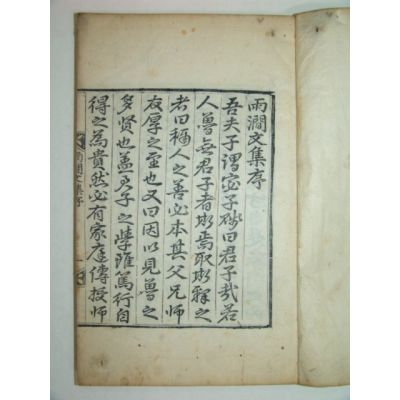 雨澗文集序
吾夫子謂宓子賤曰君子哉若
人魯無君子者斯焉取斯釋之
者曰稱人之善必本其父兄師
友厚之至也又曰因以見魯之
多賢也蓋君子之學雖篤行自
得之為貴然必有家庭傳授師
雨澗文集序
一